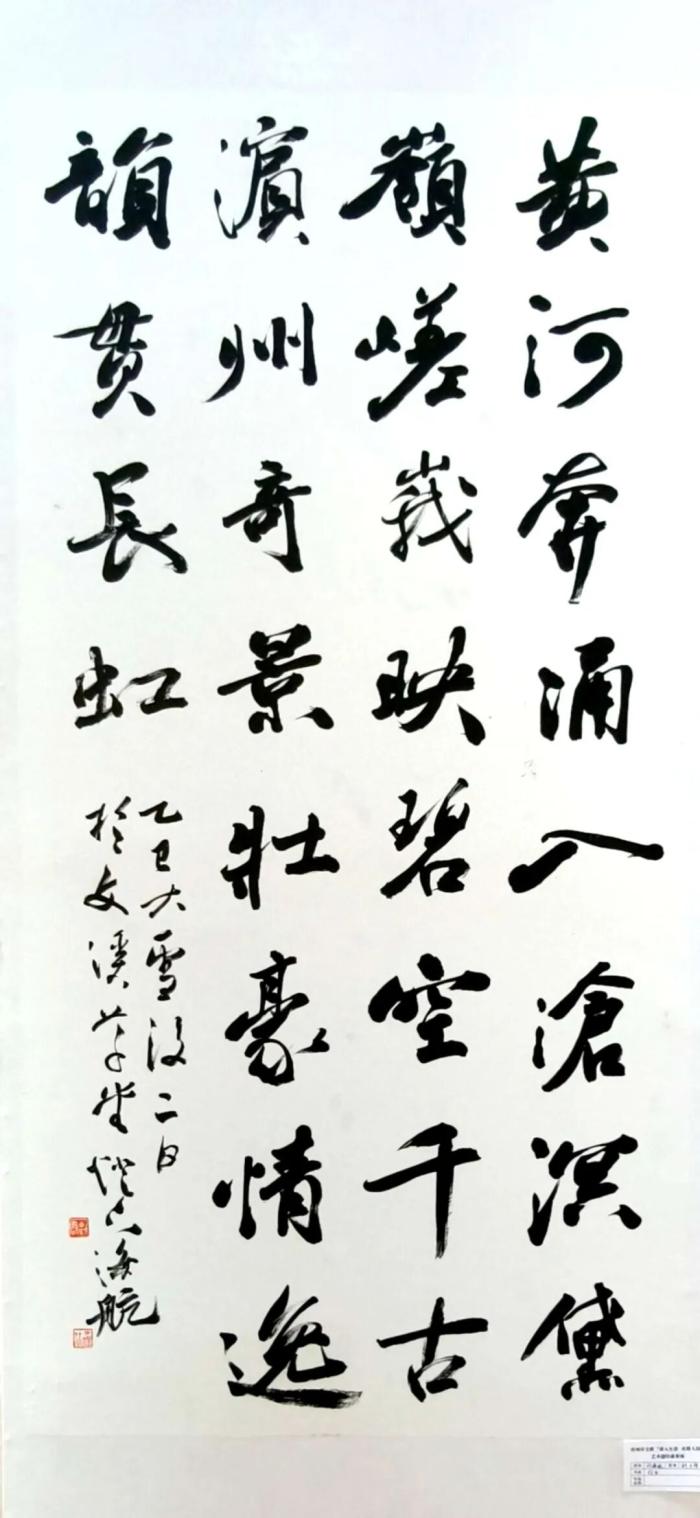 黄河奔涌入滄溟黛
嶺嵯峩映碧空千古
濱州奇景壯豪情逸
韻贯長虹
乙巳大雪後二日
於文溪草堂燈下海航